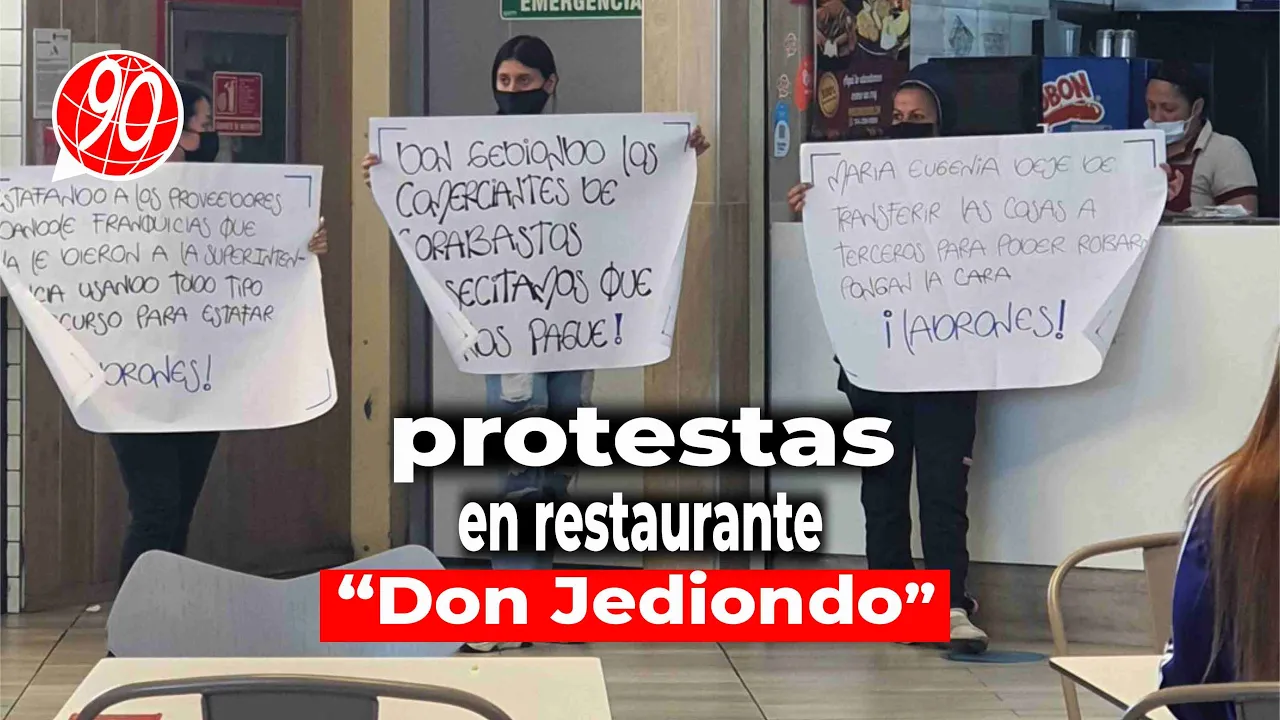 EMERGENCIA
90
STAFANDO A LOS PROVEEDORES
DANDOLE FRANQUICIAS QUE
YA LE DIERON A LA SUPERINTEN-
CIA USANDO TODO TIPO
CURSO PARA ESTAFAR
DRONES!
DON GEDIONDO LOS
COMERCIANTES DE
CORABASTOS
SECITAMOS QUE
NOS PAGUE!
MARIA EUGENIA DEJE DE
TRANSFERIR LAS COSAS A
TERCEROS PARA PODER ROBAR
PONGAN LA CARA
¡LADRONES!
OBON
protestas
en restaurante
“Don Jediondo”